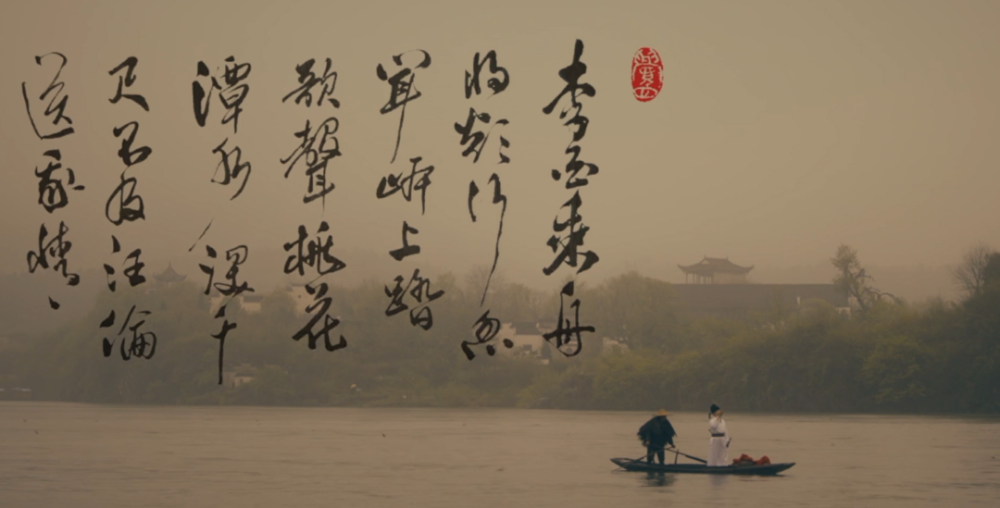 李白乘舟
将欲行忽
聞岸上踏
歌聲桃花
潭水深千
尺不及汪倫
送我情